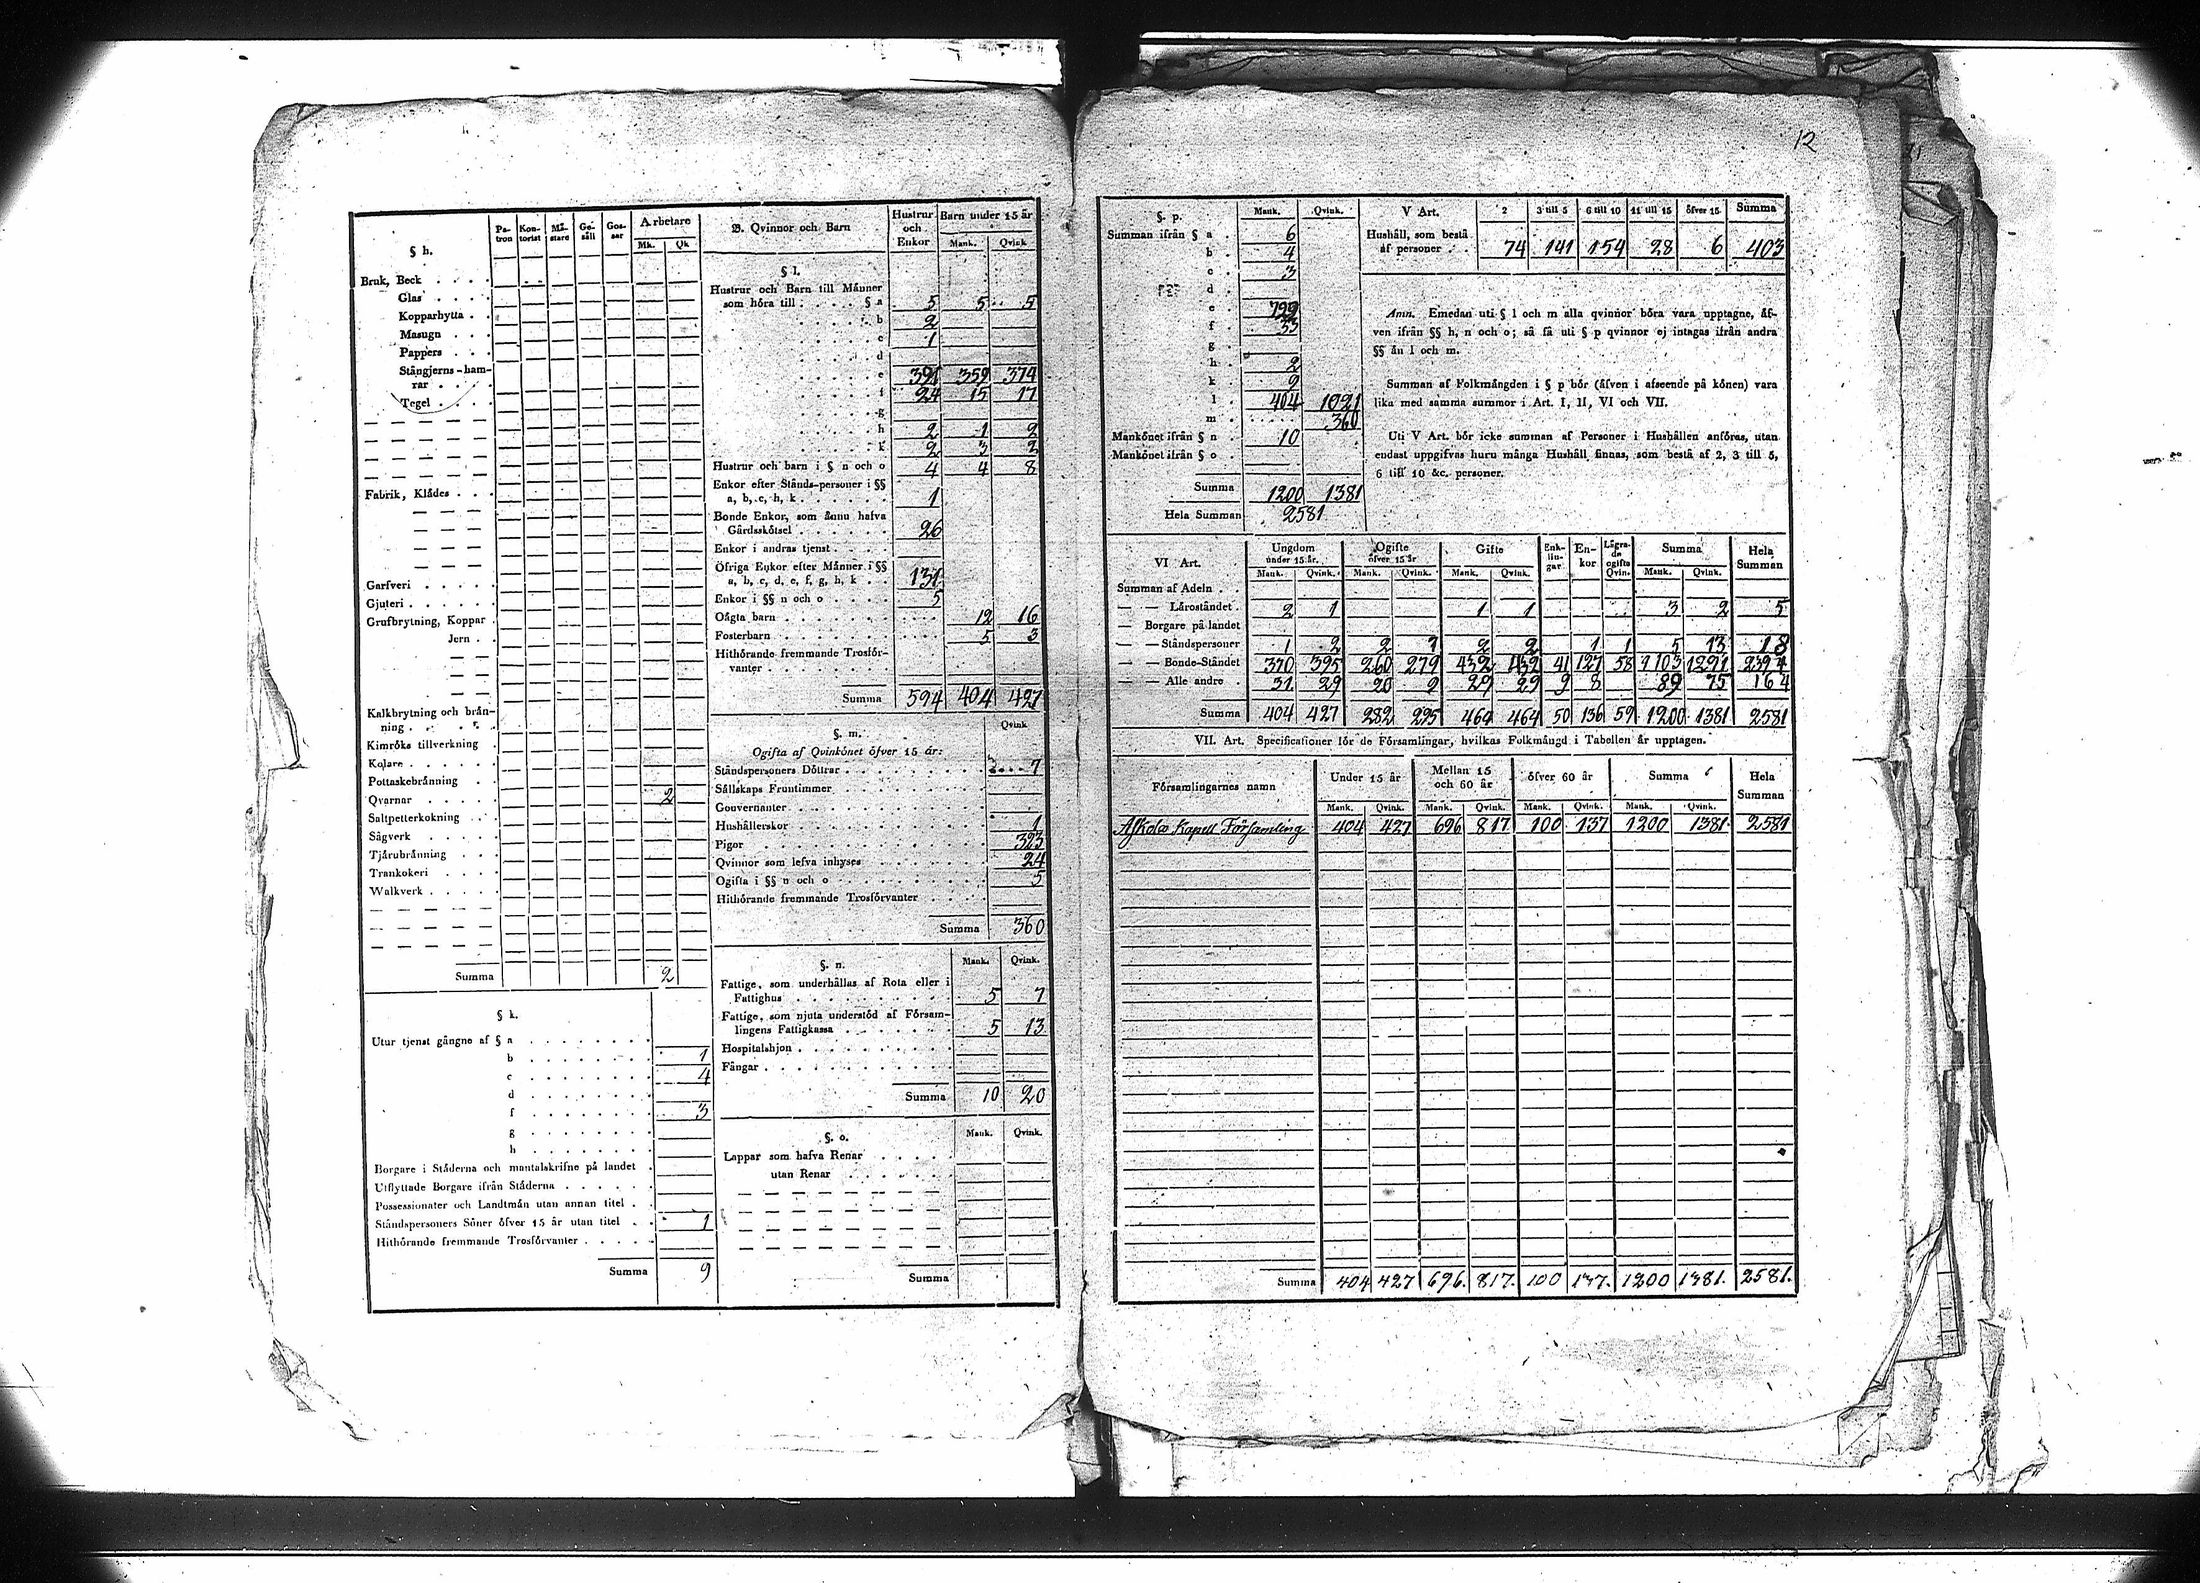 12
§ h.
Pa-tron Kon-torist Må-stare Ge-säll Gos-sar Arbetare
Mk. Qk
Bruk, Beck . . . .
Glas . . . .
Kopparhytta . .
Masugn . . .
Pappers . . .
Stångjerns-ham-
rar . . . .
Tegel . . . .
Fabrik, Klädes . . .
Garfveri . . . . .
Gjuteri . . . . .
Grufbrytning, Koppar .
Jern . .
Kalkbrytning och brån-
ning . . . . .
Kimröks tillverkning .
Kolare . . . . .
Pottaskebränning . .
Qvarnar . . . . . 2
Saltpetterkokning . .
Sågverk . . . .
Tjärubränning . . .
Trankokeri . . . .
Walkverk . . . . .
Summa 2
§ k.
Utur tjenst gångne af § a . . . . . . . .
b . . . . . . . . 1
c . . . . . . . . 4
d . . . . . . . .
f . . . . . . . . 3
g . . . . . . . .
h . . . . . . . .
Borgare i Städerna och mantalskrifne på landet .
Utflyttade Borgare ifrån Städerna . . . . . .
Possessionater och Landtmän utan annan titel .
Ståndspersoners Söner öfver 15 år utan titel . . 1
Hithörande fremmande Trosförvanter . . . . .
Summa 9
B. Qvinnor och Barn
Hustrur och Enkor Barn under 15 år
Mank. Qvink
§ l.
Hustrur och Barn till Männer
som höra till . . . . § a 5 5 5
b 2
c 1
d
e 391 359 374
f 24 15 17
g
h 2 1 2
k 2 3 2
Hustrur och barn i § n och o 4 4 8
Enkor efter Stånds-personer i §§
a, b, c, h, k . . . . . . 1
Bonde Enkor, som ännu hafva
Gårdsskötsel . . . . . . 26
Enkor i andras tjenst . . . .
Öfriga Enkor efter Männer i §§
a, b, c, d, e, f, g, h, k . . 131
Enkor i §§ n och o . . . . 5
Oägta barn . . . . . . . 12 16
Fosterbarn . . . . . . . 5 3
Hithörande fremmande Trosför-
vanter . . . . . . . .
Summa 594 404 427
§. m. Qvink
Ogifta af Qvinkönet öfver 15 år:
Ståndspersoners Döttrar . . . . . . . . 7
Sällskaps Fruntimmer . . . . . . . . .
Gouvernanter . . . . . . . . . . .
Hushållerskor . . . . . . . . . . . 1
Pigor . . . . . . . . . . . . . 323
Qvinnor som lefva inhyses . . . . . . . 24
Ogifta i §§ n och o . . . . . . . . . 5
Hithörande fremmande Trosförvanter . . . .
Summa 360
§. n. Mank. Qvink.
Fattige, som underhållas af Rota eller i
Fattighus . . . . . . . . . . 5 7
Fattige, som njuta understöd af Försam-
lingens Fattigkassa . . . . . . . 5 13
Hospitalshjon . . . . . . . . . .
Fångar . . . . . . . . . . . .
Summa 10 20
§. o. Mank. Qvink.
Lappar som hafva Renar . . . . .
utan Renar . . . . . .
Summa
§. p. Mank. Qvink.
Summan ifrån § a . 6
b . 4
c . 3
d .
e . 729
f . 33
g .
h . 2
k . 9
l . 404 1021
m . 360
Mankönet ifrån § n . 10
Mankönet ifrån § o .
Summa 1200 1381
Hela Summan 2581
V Art. 2 3 till 5 6 till 10 11 till 15 öfver 15 Summa
Hushåll, som bestå
af personer . . 74 141 154 28 6 403
Amn. Emedan uti § l och m alla qvinnor böra vara upptagne, äf-
ven ifrån §§ h, n och o; så få uti § p qvinnor ej intagas ifrån andra
§§ än l och m.
Summan af Folkmängden i § p bör (äfven i afseende på könen) vara
lika med samma summor i Art. I, II, VI och VII.
Uti V Art. bör icke summan af Personer i Hushållen anföras, utan
endast uppgifvas huru många Hushåll finnas, som bestå af 2, 3 till 5,
6 till 10 &c. personer.
VI Art. Ungdom under 15 år. Ogifte öfver 15 år Gifte Enk-lin-gar En-kor Lägra-de ogifta Qvin. Summa Hela Summan
Mank. Qvink. Mank. Qvink. Mank. Qvink. Mank. Qvink.
Summan af Adeln . .
— — Läroståndet . 2 1 1 1 3 2 5
— Borgare på landet
— — Ståndspersoner 1 2 2 7 2 2 1 1 5 13 18
— — Bonde-Ståndet 370 395 260 279 432 432 41 127 58 1103 1291 2394
— — Alle andre . 31 29 20 9 29 29 9 8 89 75 164
Summa 404 427 282 295 464 464 50 136 59 1200 1381 2581
VII. Art. Specificationer för de Församlingar, hvilkas Folkmängd i Tabellen är upptagen.
Församlingarnes namn Under 15 år Mellan 15 och 60 år öfver 60 år Summa Hela Summan
Mank. Qvink. Mank. Qvink. Mank. Qvink. Mank. Qvink.
Askola Kapell Församling 404 427 696 817 100 137 1200 1381 2581
Summa 404 427 696. 817. 100 137. 1200 1381. 2581.